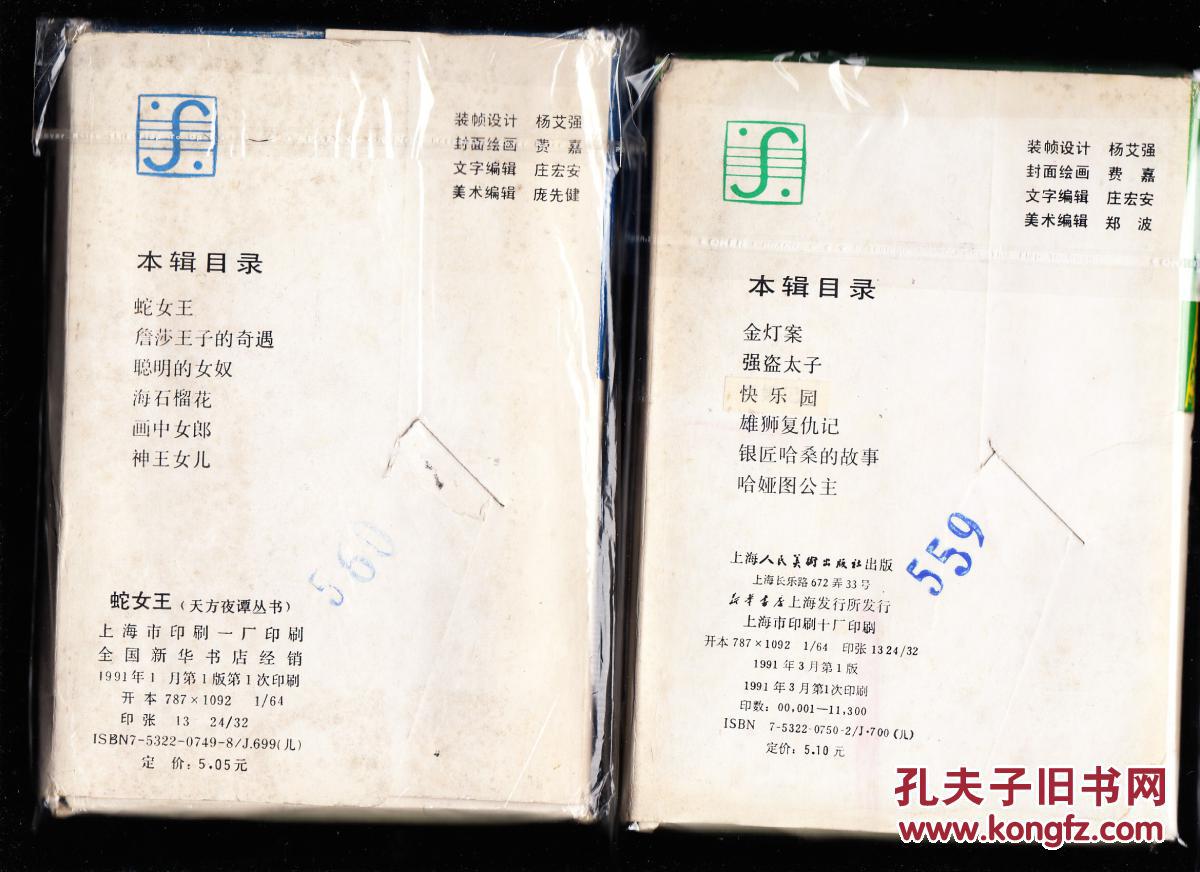 装帧设计 杨艾强
封面绘画 费 嘉
文字编辑 庄宏安
美术编辑 庞先健
本辑目录
蛇女王
詹莎王子的奇遇
聪明的女奴
海石榴花
画中女郎
神王女儿
560
蛇女王(天方夜谭丛书)
上海市印刷一厂印刷
全国新华书店经销
1991年1 月第1版第1次印刷
开 本 787×1092 1/64
印 张 13 24/32
ISBN7-5322-0749-8/J.699(儿)
定 价: 5.05元
装帧设计 杨艾强
封面绘画 费 嘉
文字编辑 庄宏安
美术编辑 郑 波
本辑目录
金灯案
强盗太子
快乐园
雄狮复仇记
银匠哈桑的故事
哈娅图公主
559
上海人民美術出版社出版
上海长乐路 672 弄 33 号
新华书店上海发行所发行
上海市印刷十厂印刷
开本 787×1092 1/64 印张 13 24/32
1991 年 3 月第 1 版
1991 年 3 月第1次印刷
印数: 00,001—11,300
ISBN 7-5322-0750-2/J·700 (儿)
定价: 5.10 元
孔夫子旧书网
www.kongfz.com